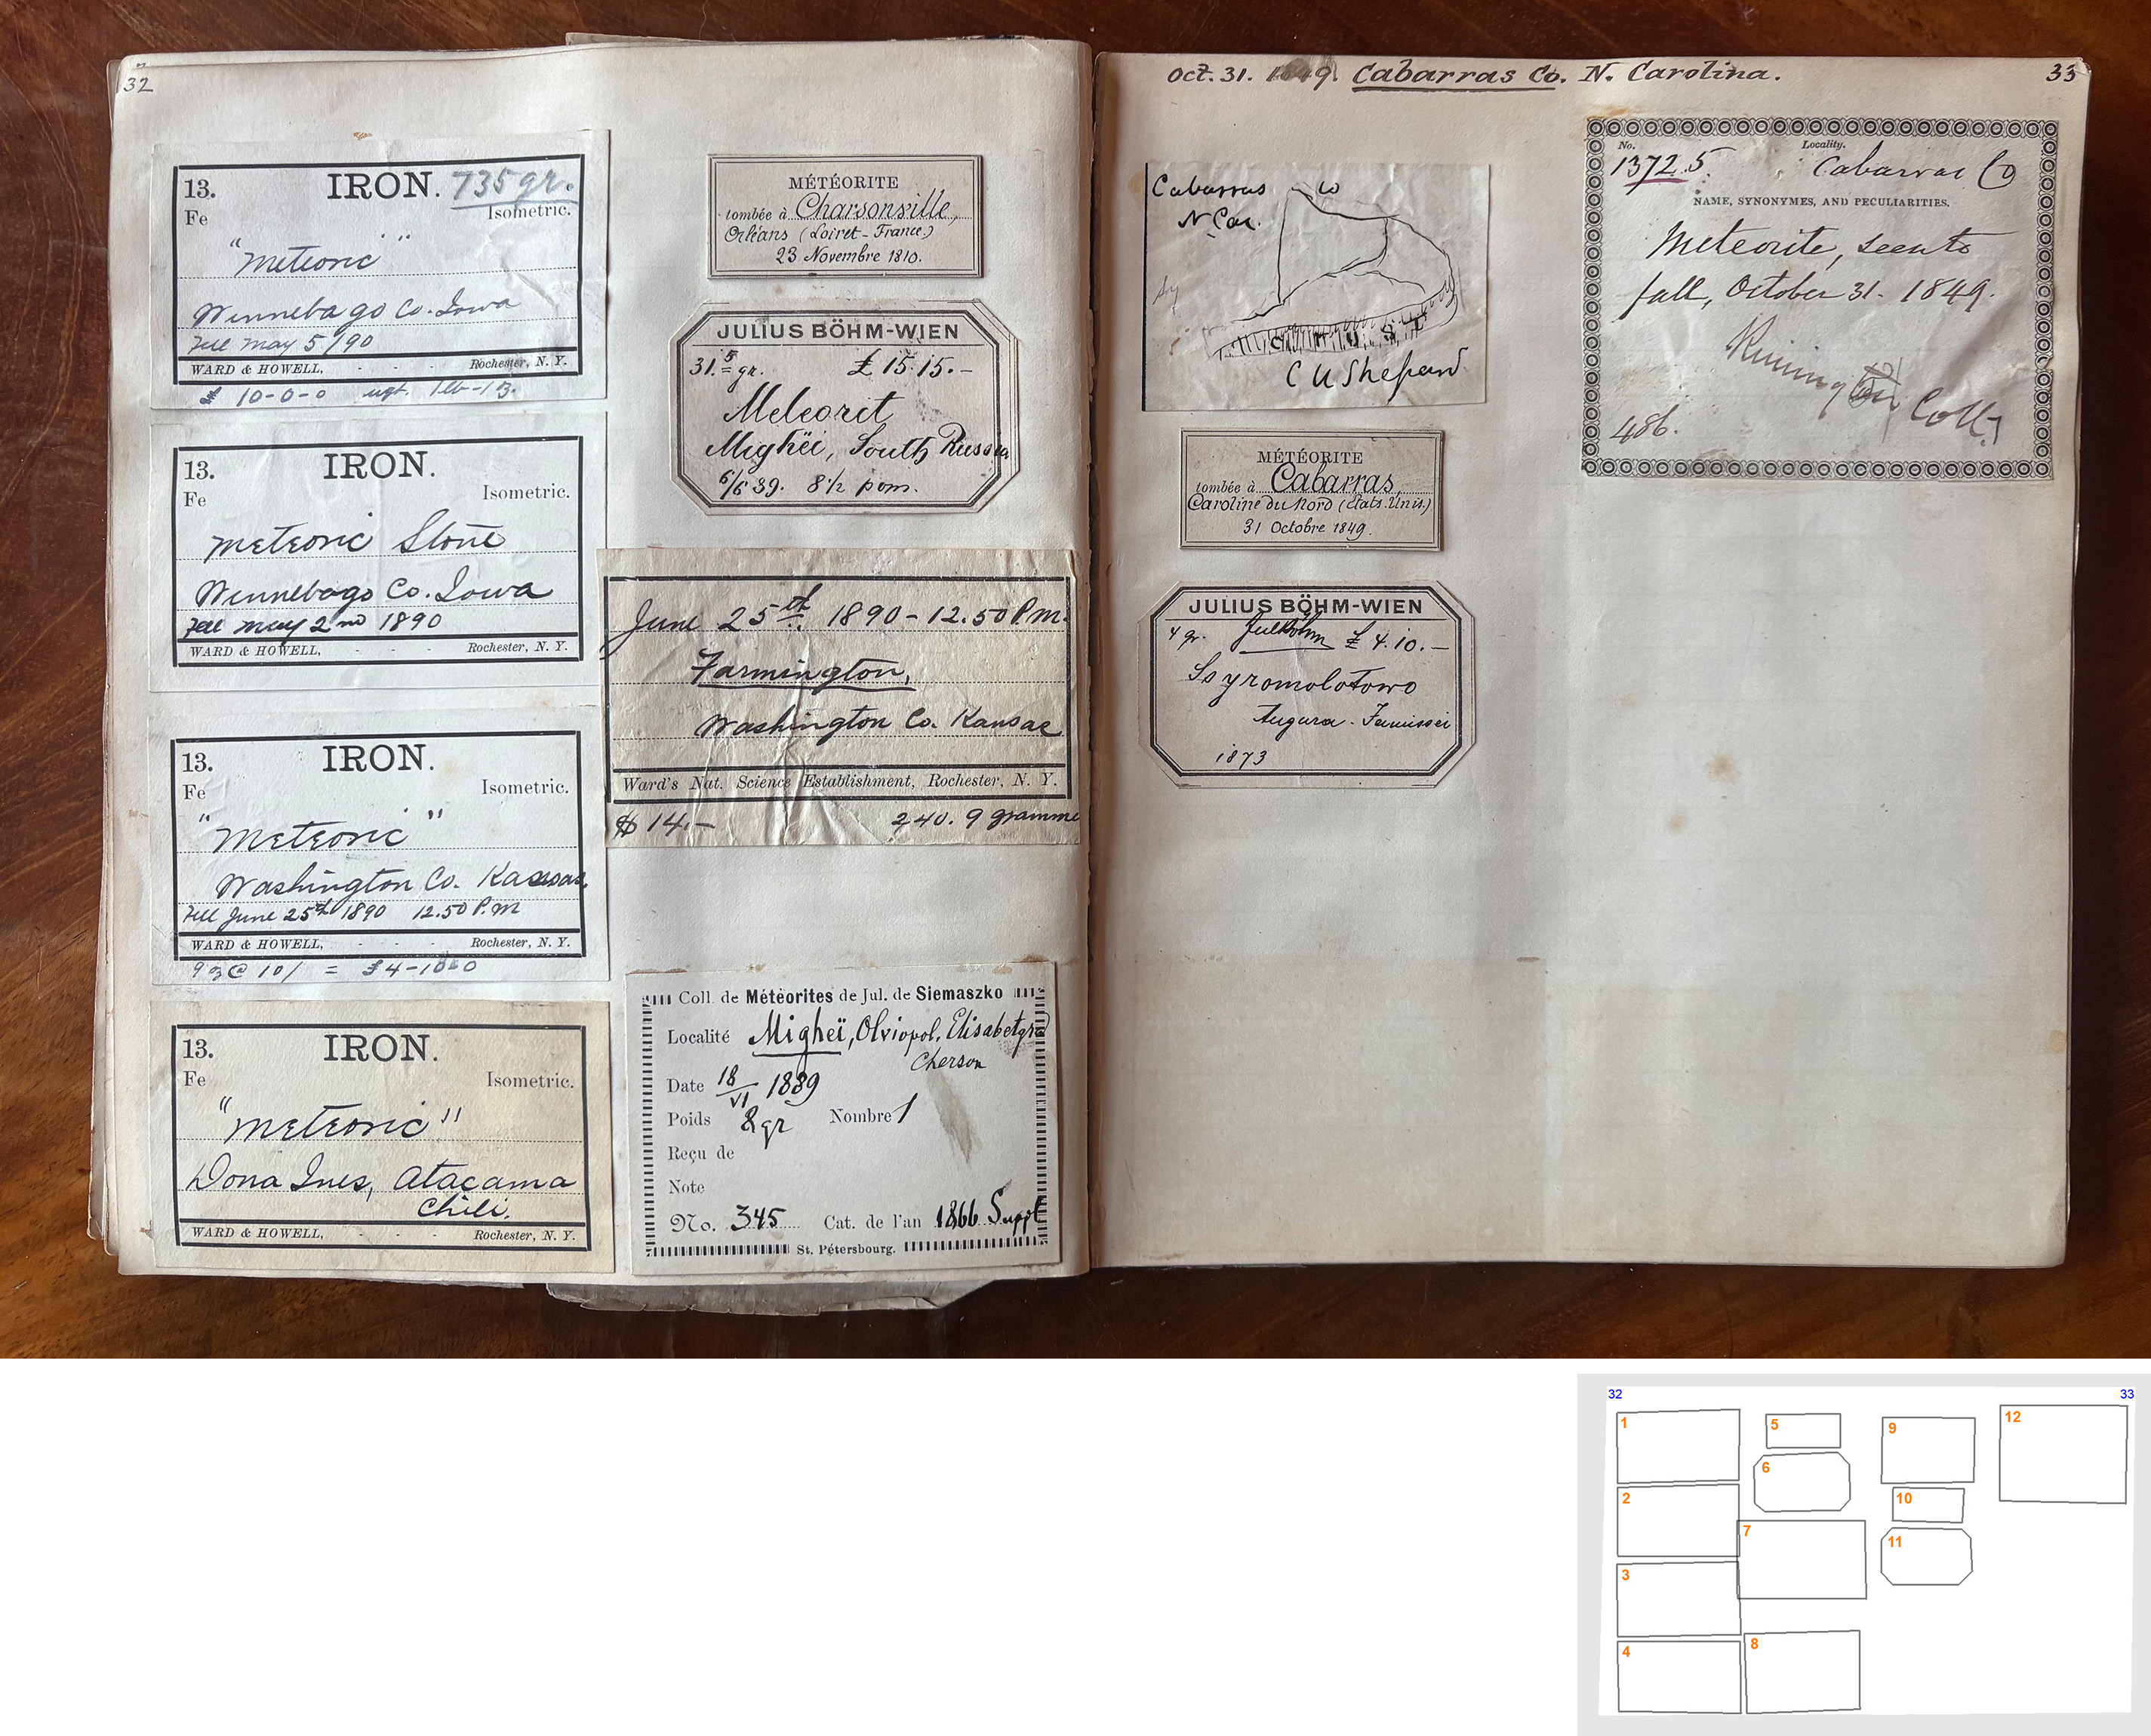 32
13.
IRON. 735 gr.
Fe
Isometric.
"Meteoric"
Winnebago Co. Iowa
Fell May 5/90
WARD & HOWELL, - - - Rochester, N. Y.
10-0-0 wgt. 1lb-13.
13.
IRON.
Fe
Isometric.
Meteoric Stone
Winnebago Co. Iowa
Fell May 2nd 1890
WARD & HOWELL, - - - Rochester, N. Y.
13.
IRON.
Fe
Isometric.
"Meteoric"
Washington Co. Kansas.
Fell June 25th 1890 12.50 P.M
WARD & HOWELL, - - - Rochester, N. Y.
9 z @ 10/ = £4-10-0
13.
IRON.
Fe
Isometric.
"Meteoric"
Dona Ines, Atacama
Chili.
WARD & HOWELL, - - - Rochester, N. Y.
MÉTÉORITE
tombée à Charsonville,
Orléans (Loiret-France.)
23 Novembre 1810.
JULIUS BÖHM-WIEN
31.5 gr. £ 15.15.-
Meteorit
Mighëi, South Russia
6/6 89. 8 1/2 pom.
June 25th. 1890 - 12.50 P.M.
Farmington,
Washington Co. Kansas
Ward's Nat. Science Establishment, Rochester, N. Y.
$ 14.- 240.9 gramme
Coll. de Météorites de Jul. de Siemaszko
Localité Migheï, Olviopol, Elisabetgrad
Cherson
Date 18/VI 1889
Poids 8 gr Nombre 1
Reçu de
Note
No. 345 Cat. de l'an 1866 Suppl
St. Pétersbourg.
Oct. 31. 1849. Cabarras Co. N. Carolina.
33
Cabarras Co
N. Car.
CRUST
C U Shepard
MÉTÉORITE
tombée à Cabarras,
Caroline du Nord (États-Unis.)
31 Octobre 1849.
JULIUS BÖHM-WIEN
4 gr. Jul Böhm £ 4.10.-
Ssyromolotowo
Angara - Jenissei
1873
No. Locality.
1372.5. Cabarras Co
NAME, SYNONYMES, AND PECULIARITIES.
Meteorite, seen to
fall, October 31. 1849.
Coll.
486.
32
33
1
2
3
4
5
6
7
8
9
10
11
12